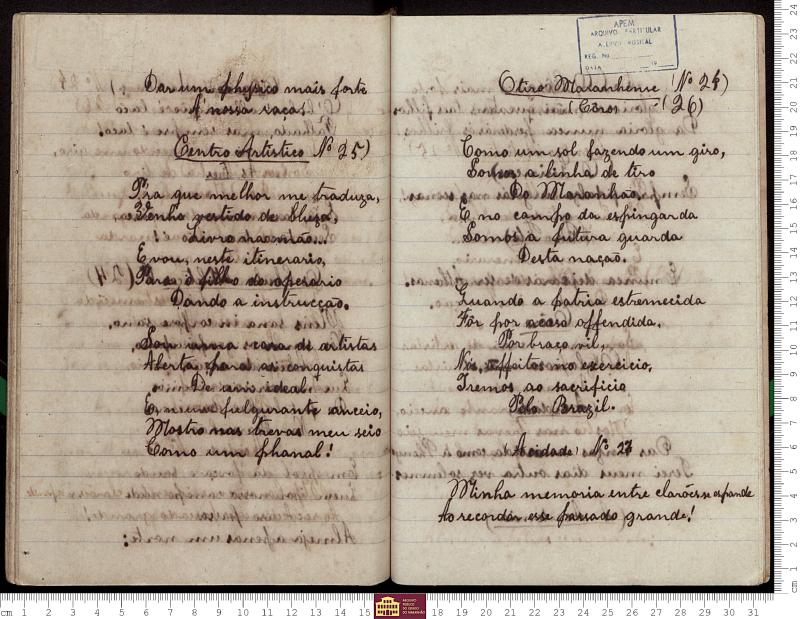 Dar um physico mais forte
A' nossa raça!
Centro Artistico Nº 25)
P'ra que melhor me traduza,
Tenho vestido de bluza,
Livro na mão...
E vou, neste itinerario,
Para o filho do operario (24)
Dando a instrucção.
Sou uma casa de artistas
Aberta para as conquistas
De um ideal.
E, n'um fulgurante anceio,
Mostro nas trevas meu seio
Como um phanal!
APEM
ARQUIVO PARTICULAR
ACERVO MUSICAL
REG. No
DATA 19
O tiro Maranhense (Nº 24)
(Côro) (26)
Como um sol fazendo um giro,
Somos a linha de tiro
Do Maranhão,
E no campo da espingarda
Somos a futura guarda
Desta nação.
Quando a patria estremecida
Fôr por acaso offendida,
Por braço vil,
Nós, affeitos no exercicio,
Iremos ao sacrificio
Pelo Brazil.
(A cidade) Nº 27
Minha memoria entre clarões se expande
Ao recordar esse passado grande!
ARQUIVO
PÚBLICO
DO ESTADO
DO MARANHÃO